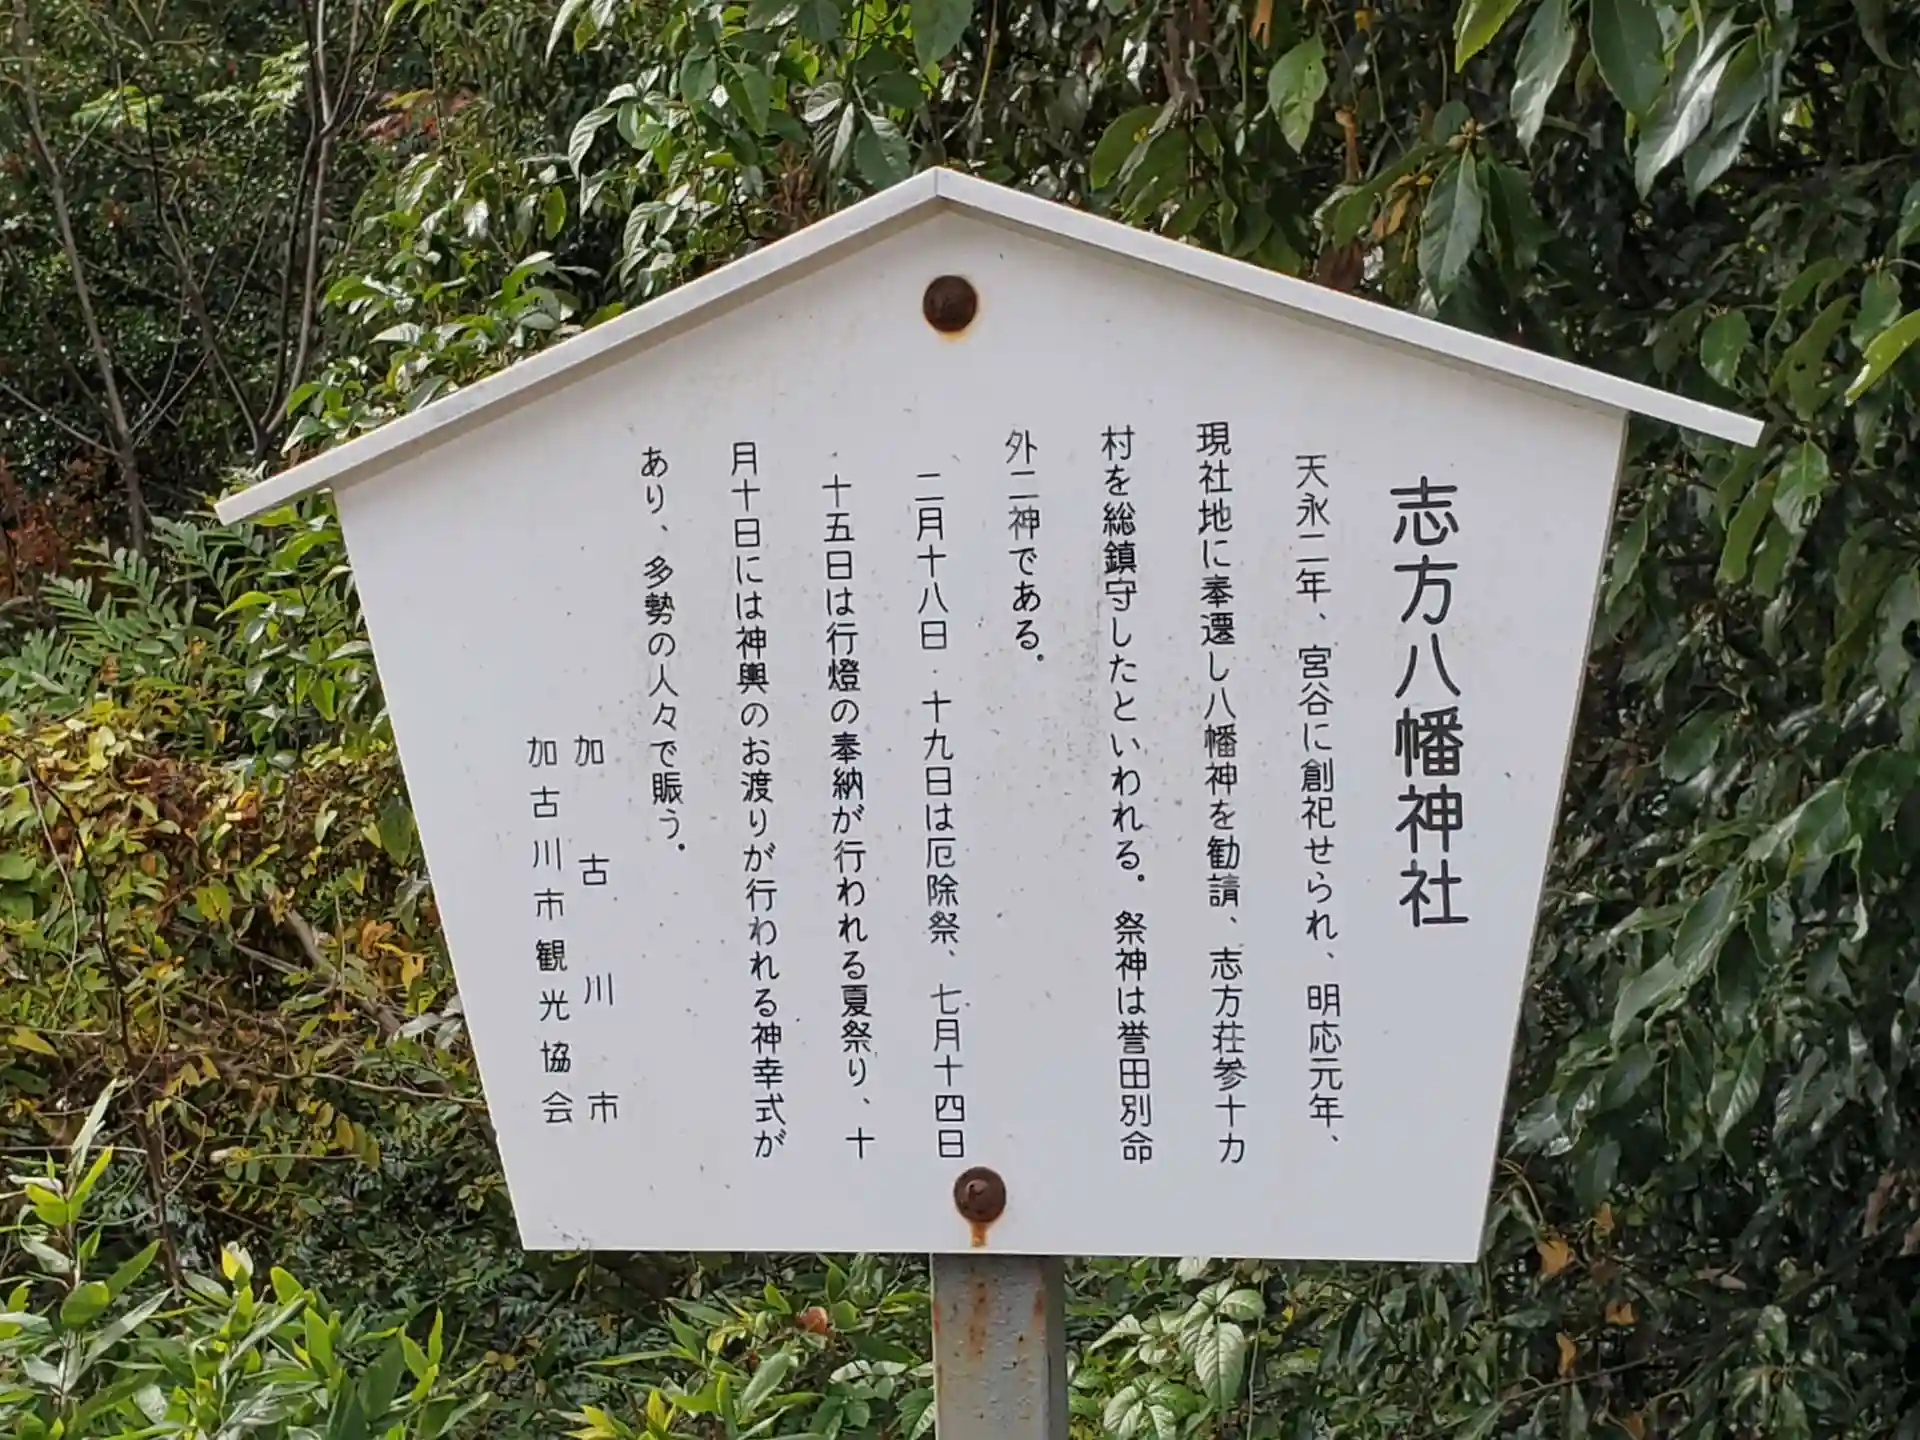 志方八幡神社
天永二年、宮谷に創祀せられ、明応元年、
現社地に奉遷し八幡神を勧請、志方荘参十カ
村を総鎮守したといわれる。祭神は誉田別命
外二神である。
二月十八日・十九日は厄除祭、七月十四日
十五日は行燈の奉納が行われる夏祭り、十
月十日には神輿のお渡りが行われる神幸式が
あり、多勢の人々で賑う。
加古川市
加古川市観光協会